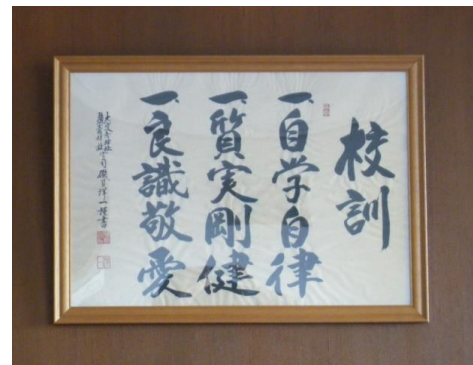 校訓
一、自学自律
一、質実剛健
一、良識敬愛